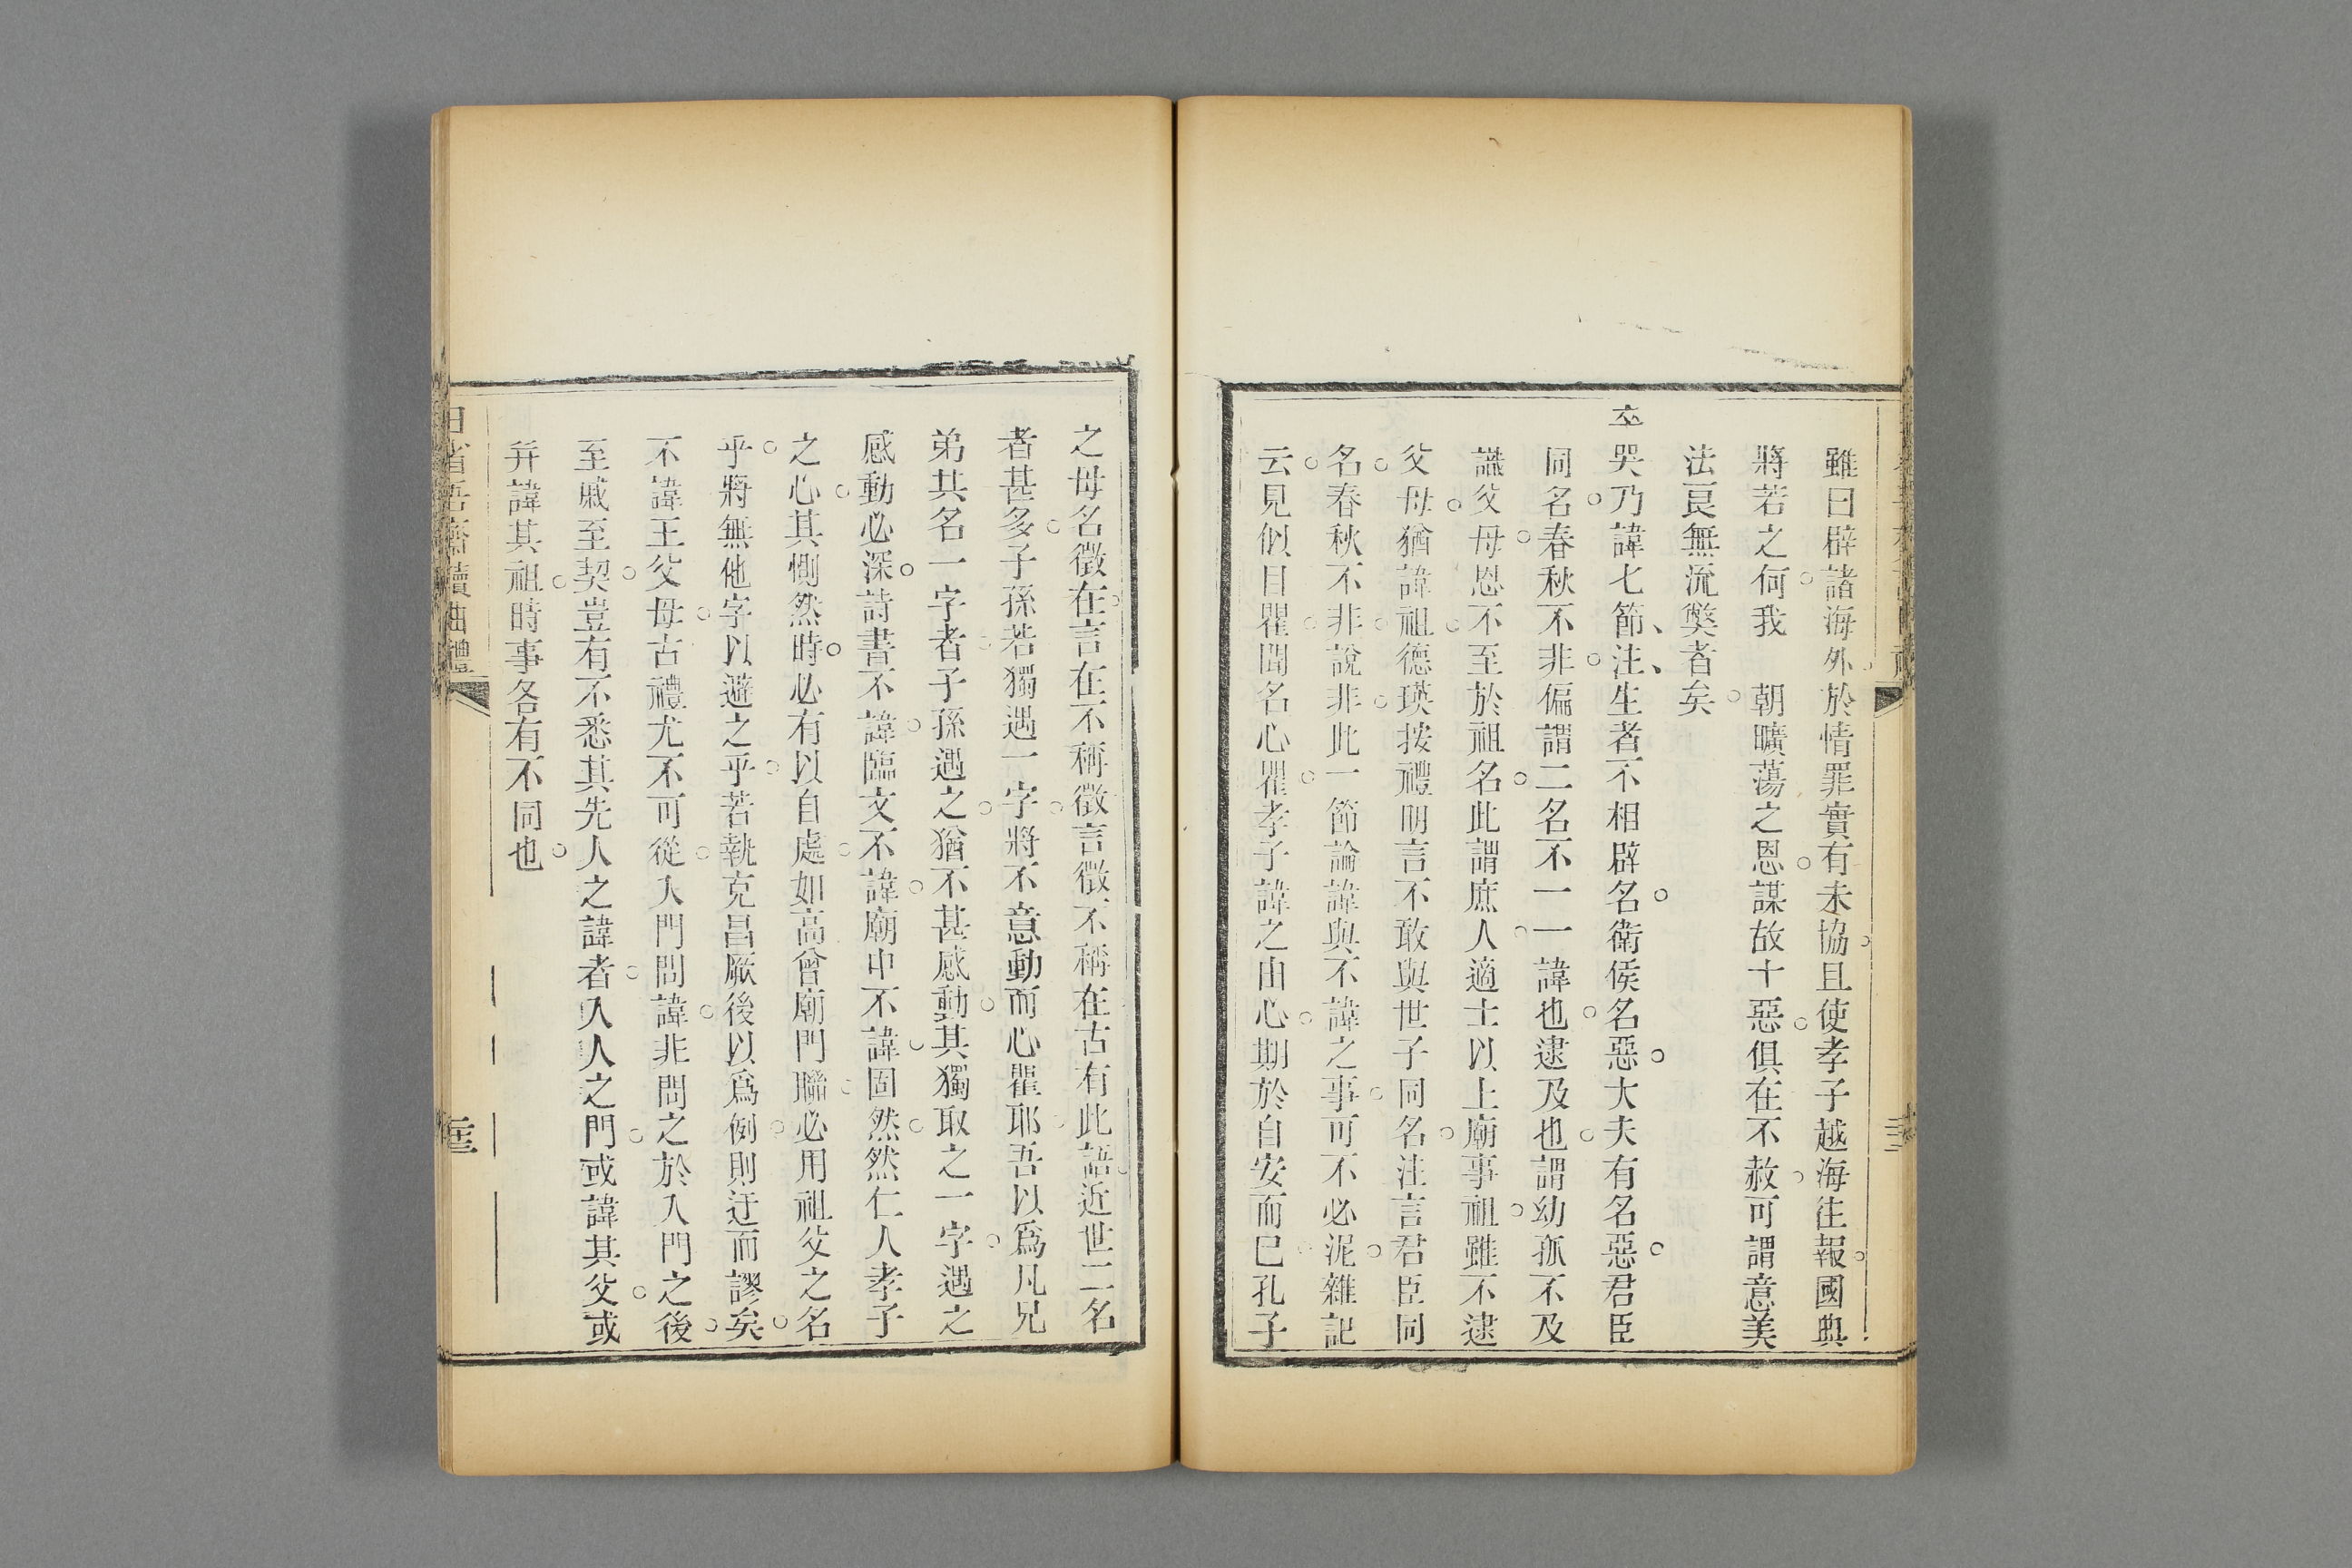 雖曰辟諸海外於情罪實有未協且使孝子越海往報國典
將若之何我　朝曠蕩之恩謀故十惡俱在不赦可謂意美
法良無流獘者矣
卒哭乃諱七節注生者不相辟名衛侯名惡大夫有名惡君臣
同名春秋不非偏謂二名不一一諱也逮及也謂幼孤不及
識父母恩不至於祖名此謂庶人適士以上廟事祖雖不逮
父母猶諱祖德瑛按禮明言不敢與世子同名注言君臣同
名春秋不非說非此一節論諱與不諱之事可不必泥雜記
云見似目瞿聞名心瞿孝子諱之由心期於自安而已孔子
之母名徵在言在不稱徵言徵不稱在古有此語近世二名
者甚多子孫若獨遇一字將不意動而心瞿耶吾以爲凡兄
弟其名一字者子孫遇之猶不甚感動其獨取之一字遇之
感動必深詩書不諱臨文不諱廟中不諱固然然仁人孝子
之心其惻然時必有以自處如高曾廟門聯必用祖父之名
乎將無他字以避之乎若執克昌厥後以爲例則迂而謬矣
不諱王父母古禮尤不可從入門問諱非問之於入門之後
至戚至契豈有不悉其先人之諱者入人之門或諱其父或
幷諱其祖時事各有不同也
日省吾齋讀曲禮